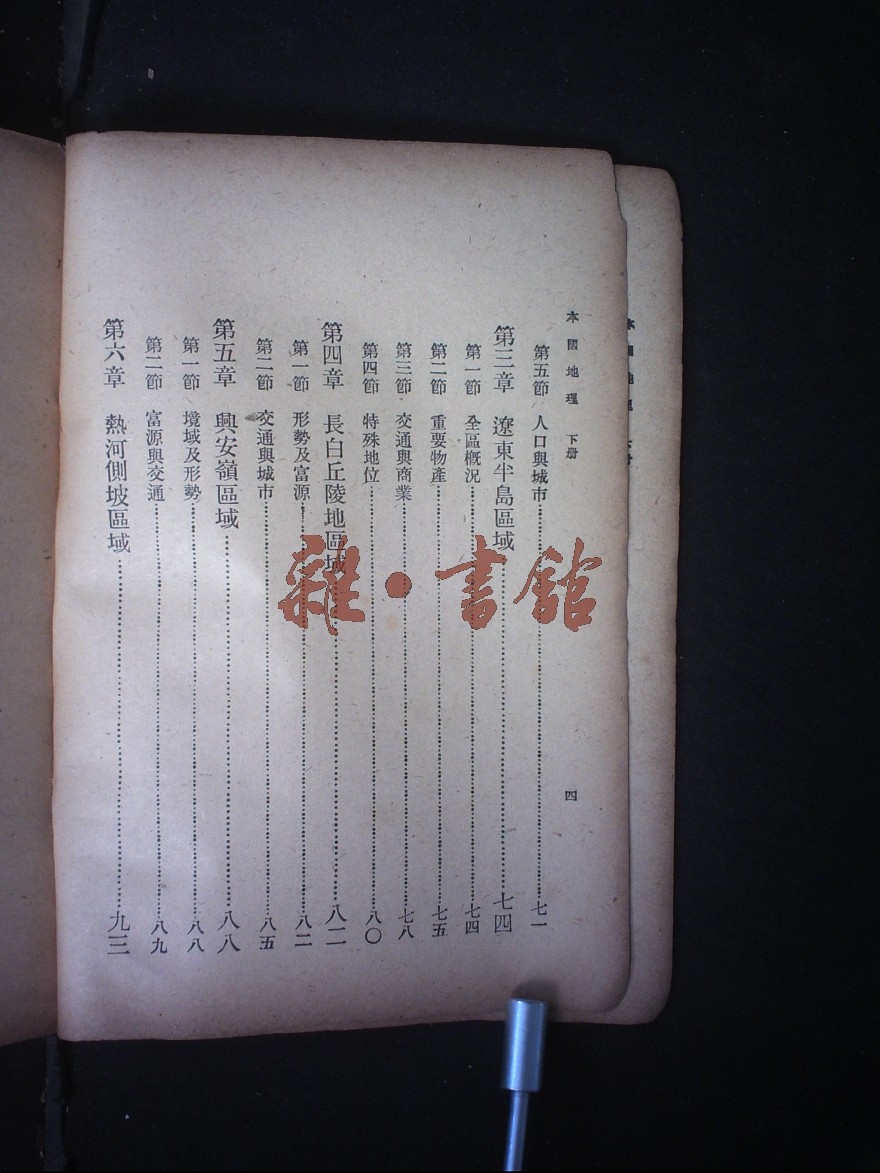 本國地理 下册
四
第五節 人口與城市 七一
第三章 遼東半島區域 七四
第一節 全區概況 七四
第二節 重要物產 七五
第三節 交通與商業 七八
第四節 特殊地位 八〇
第四章 長白丘陵地區域 八二
第一節 形勢及富源 八二
第二節 交通與城市 八五
第五章 興安嶺區域 八八
第一節 境域及形勢 八八
第二節 富源與交通 八九
第六章 熱河側坡區域 九三
雜·書館